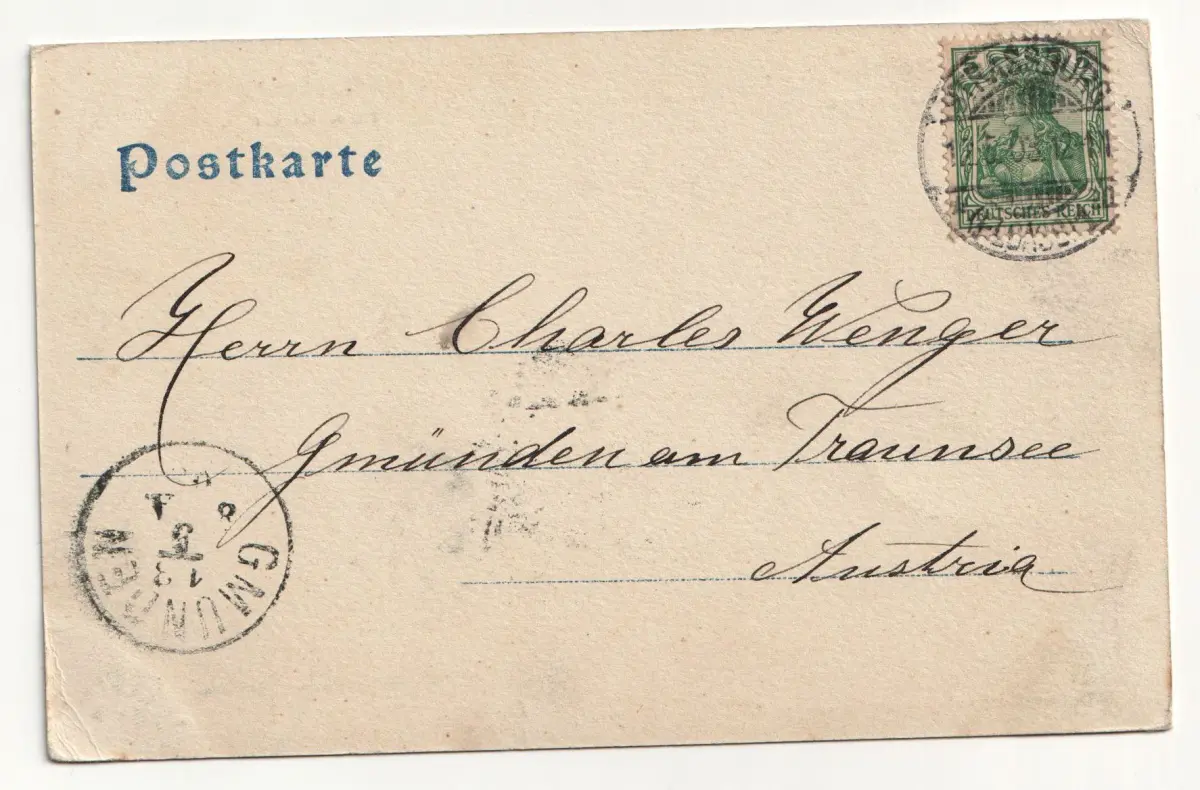 Postkarte
DEUTSCHES REICH
Herrn Charles Wenger
Gmünden am Traunsee
Austria
GMUNDEN